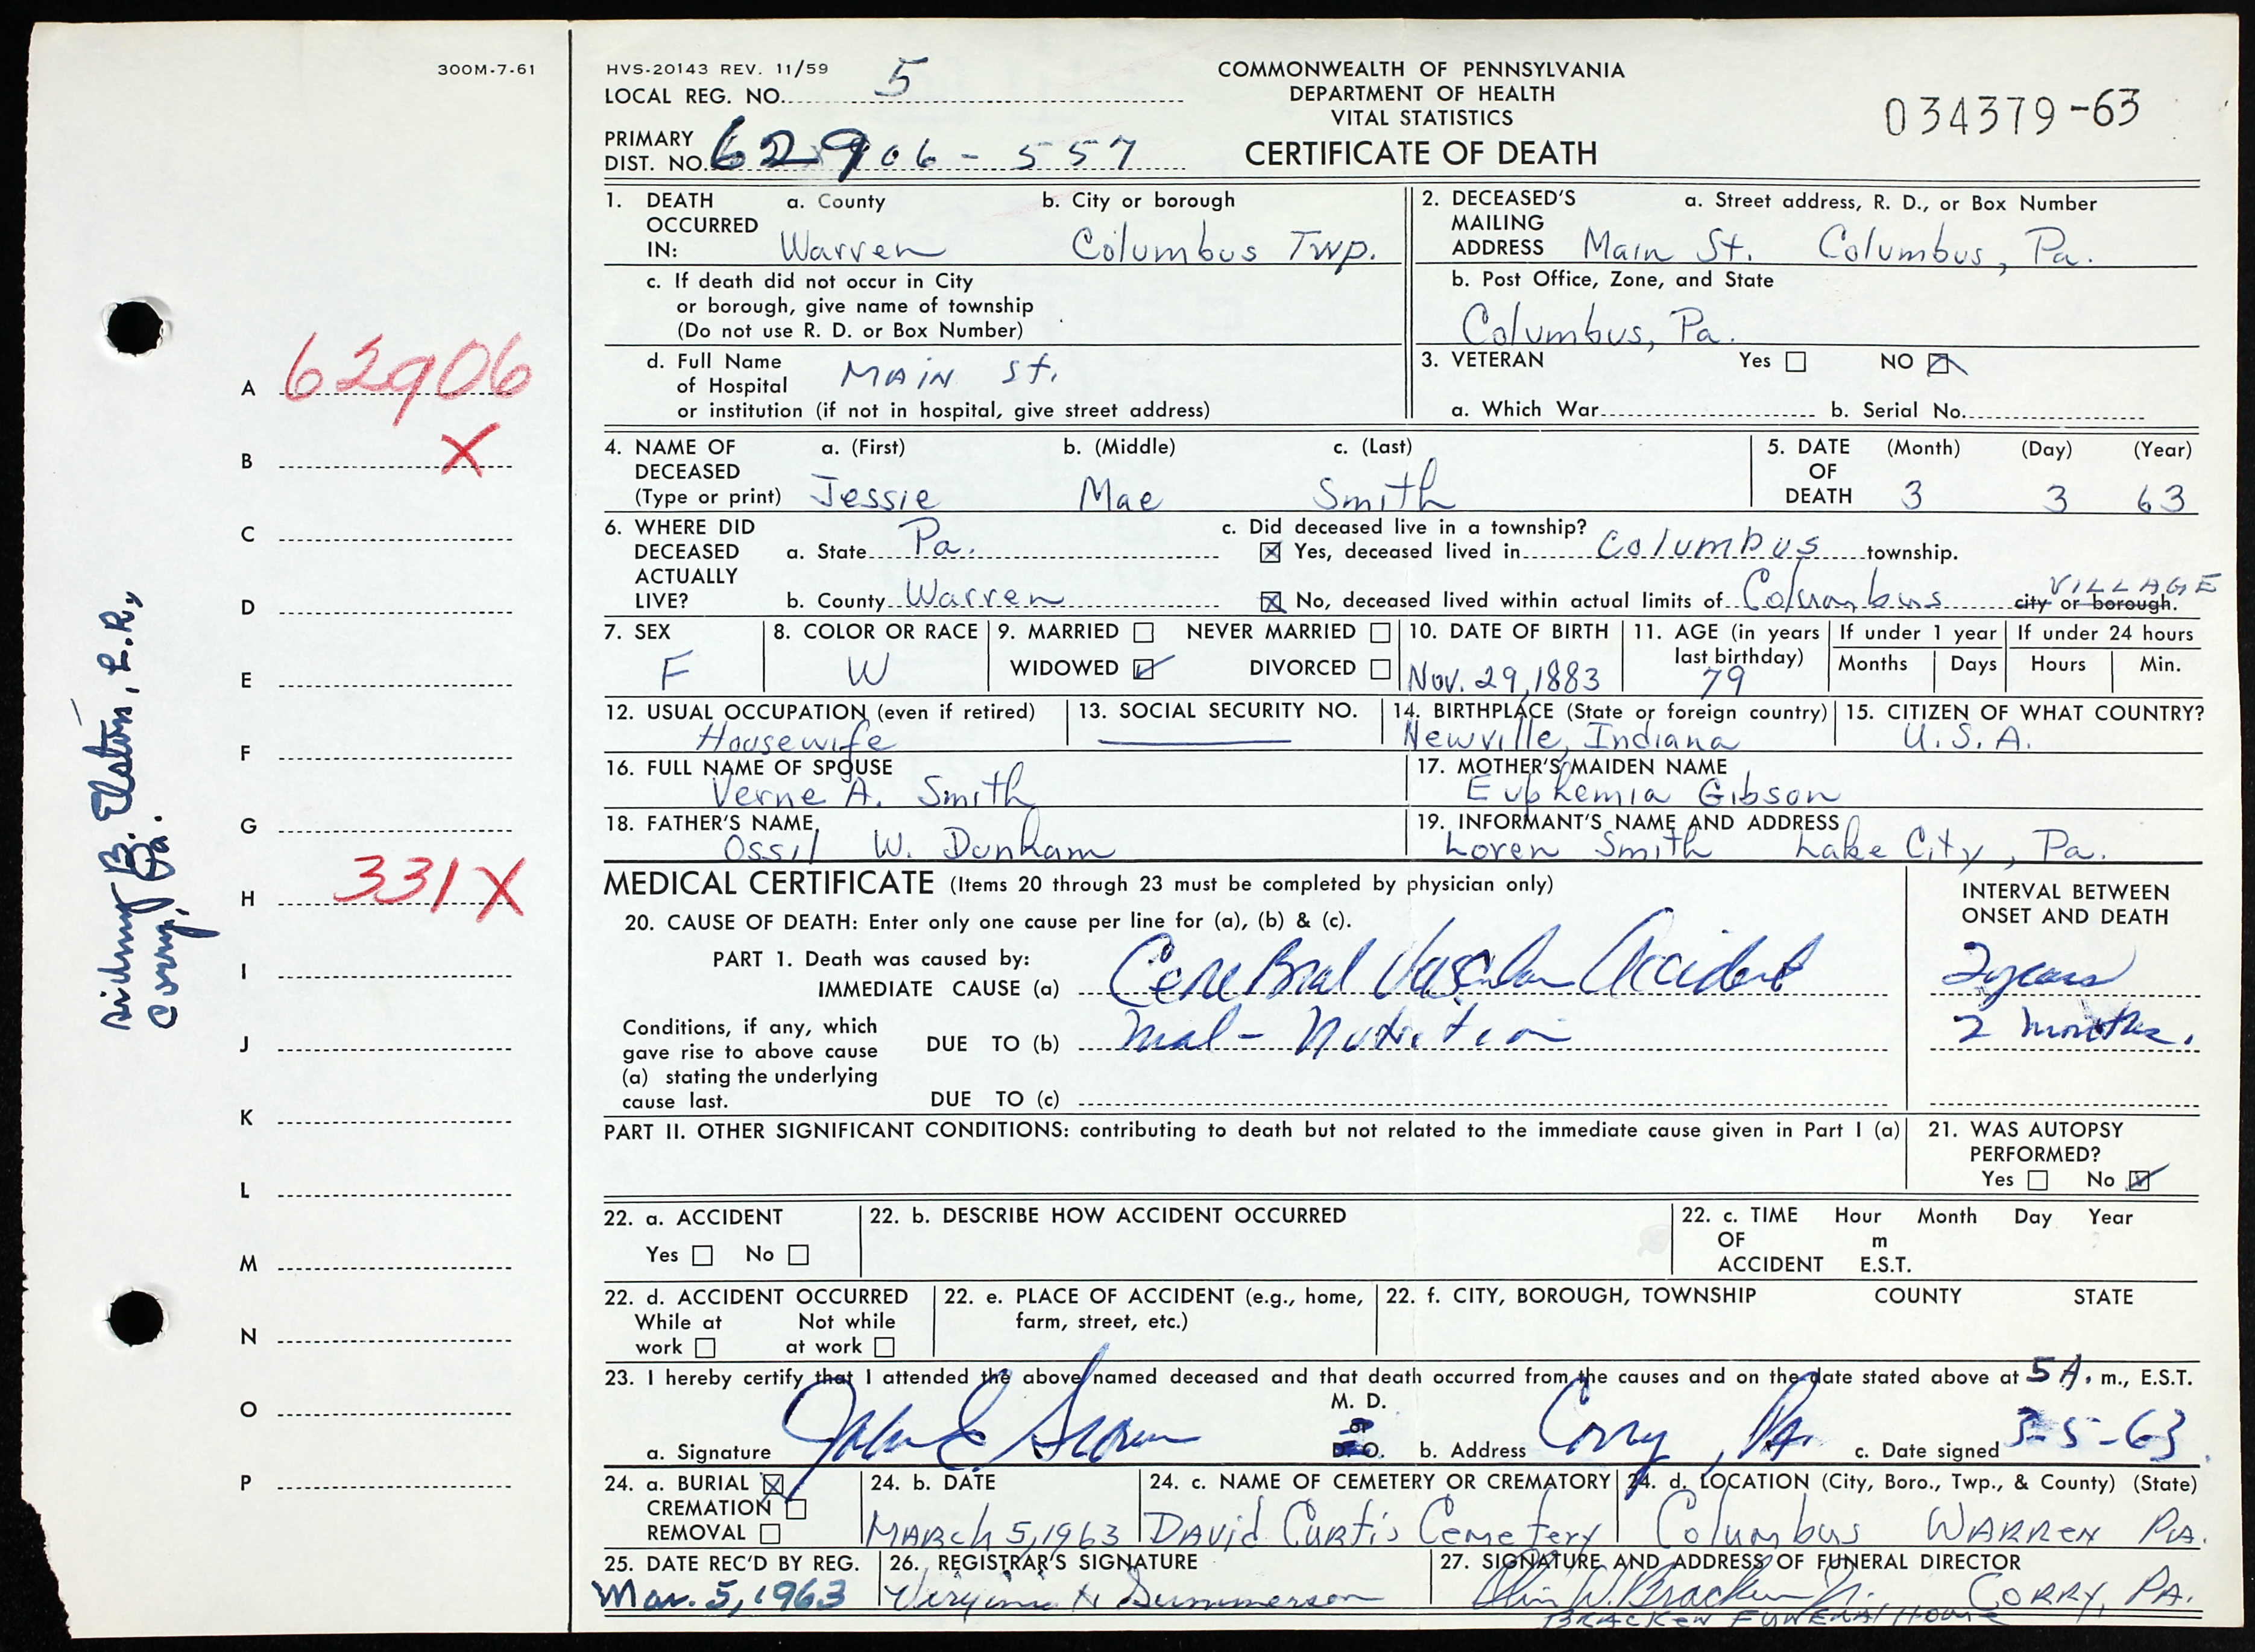 300M-7-61
HVS-20143 REV. 11/59
LOCAL REG. NO. 5
PRIMARY
DIST. NO. 62906-557
COMMONWEALTH OF PENNSYLVANIA
DEPARTMENT OF HEALTH
VITAL STATISTICS
CERTIFICATE OF DEATH
034379-63
1. DEATH OCCURRED IN: a. County b. City or borough
Warren Columbus Twp.
c. If death did not occur in City
or borough, give name of township
(Do not use R. D. or Box Number)
d. Full Name
of Hospital MAIN St.
or institution (if not in hospital, give street address)
2. DECEASED'S MAILING ADDRESS a. Street address, R. D., or Box Number
Main St. Columbus, Pa.
b. Post Office, Zone, and State
Columbus, Pa.
3. VETERAN Yes ☐ NO ☒
a. Which War b. Serial No.
4. NAME OF DECEASED (Type or print) a. (First) b. (Middle) c. (Last)
Jessie Mae Smith
5. DATE OF DEATH (Month) (Day) (Year)
3 3 63
6. WHERE DID DECEASED ACTUALLY LIVE?
a. State Pa.
b. County Warren
c. Did deceased live in a township?
☒ Yes, deceased lived in Columbus township.
☒ No, deceased lived within actual limits of Columbus city or borough. VILLAGE
7. SEX
F
8. COLOR OR RACE
W
9. MARRIED ☐ NEVER MARRIED ☐
WIDOWED ☑ DIVORCED ☐
10. DATE OF BIRTH
Nov. 29, 1883
11. AGE (in years last birthday)
79
If under 1 year
Months Days
If under 24 hours
Hours Min.
12. USUAL OCCUPATION (even if retired)
Housewife
13. SOCIAL SECURITY NO.
14. BIRTHPLACE (State or foreign country)
Newville, Indiana
15. CITIZEN OF WHAT COUNTRY?
U.S.A.
16. FULL NAME OF SPOUSE
Verne A. Smith
17. MOTHER'S MAIDEN NAME
Euphemia Gibson
18. FATHER'S NAME
Ossil W. Dunham
19. INFORMANT'S NAME AND ADDRESS
Loren Smith Lake City, Pa.
MEDICAL CERTIFICATE (Items 20 through 23 must be completed by physician only)
20. CAUSE OF DEATH: Enter only one cause per line for (a), (b) & (c).
INTERVAL BETWEEN
ONSET AND DEATH
PART 1. Death was caused by:
IMMEDIATE CAUSE (a) Cerebral Vascular Accident 2 years
Conditions, if any, which
gave rise to above cause
(a) stating the underlying
cause last.
DUE TO (b) Mal-Nutrition 2 months.
DUE TO (c)
PART II. OTHER SIGNIFICANT CONDITIONS: contributing to death but not related to the immediate cause given in Part I (a)
21. WAS AUTOPSY
PERFORMED?
Yes ☐ No ☒
22. a. ACCIDENT
Yes ☐ No ☐
22. b. DESCRIBE HOW ACCIDENT OCCURRED
22. c. TIME Hour Month Day Year
OF m
ACCIDENT E.S.T.
22. d. ACCIDENT OCCURRED
While at work ☐ Not while at work ☐
22. e. PLACE OF ACCIDENT (e.g., home,
farm, street, etc.)
22. f. CITY, BOROUGH, TOWNSHIP COUNTY STATE
23. I hereby certify that I attended the above named deceased and that death occurred from the causes and on the date stated above at 5 A. m., E.S.T.
a. Signature John E. M. D. or D. O. b. Address Corry, Pa. c. Date signed 3-5-63
24. a. BURIAL ☒
CREMATION ☐
REMOVAL ☐
24. b. DATE
MARCH 5, 1963
24. c. NAME OF CEMETERY OR CREMATORY
DAVID CURTIS CEMETERY
24. d. LOCATION (City, Boro., Twp., & County) (State)
Columbus WARREN PA.
25. DATE REC'D BY REG.
Mar. 5, 1963
26. REGISTRAR'S SIGNATURE
Virginia N Summerson
27. SIGNATURE AND ADDRESS OF FUNERAL DIRECTOR
Olin W. Bracken Jr. CORRY, PA.
BRACKEN FUNERAL HOME
A 62906
B X
C
D
E
F
G
H 331X
I
J
K
L
M
N
O
P
Sidney B. Elston, L.R.,
Corry, Pa.